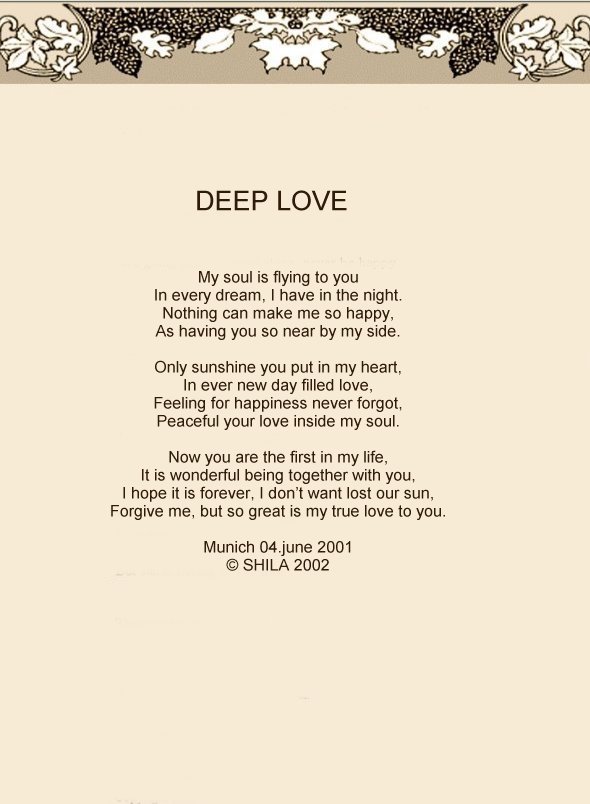 DEEP LOVE
My soul is flying to you
In every dream, I have in the night.
Nothing can make me so happy,
As having you so near by my side.
Only sunshine you put in my heart,
In ever new day filled love,
Feeling for happiness never forgot,
Peaceful your love inside my soul.
Now you are the first in my life,
It is wonderful being together with you,
I hope it is forever, I don’t want lost our sun,
Forgive me, but so great is my true love to you.
Munich 04.june 2001
© SHILA 2002